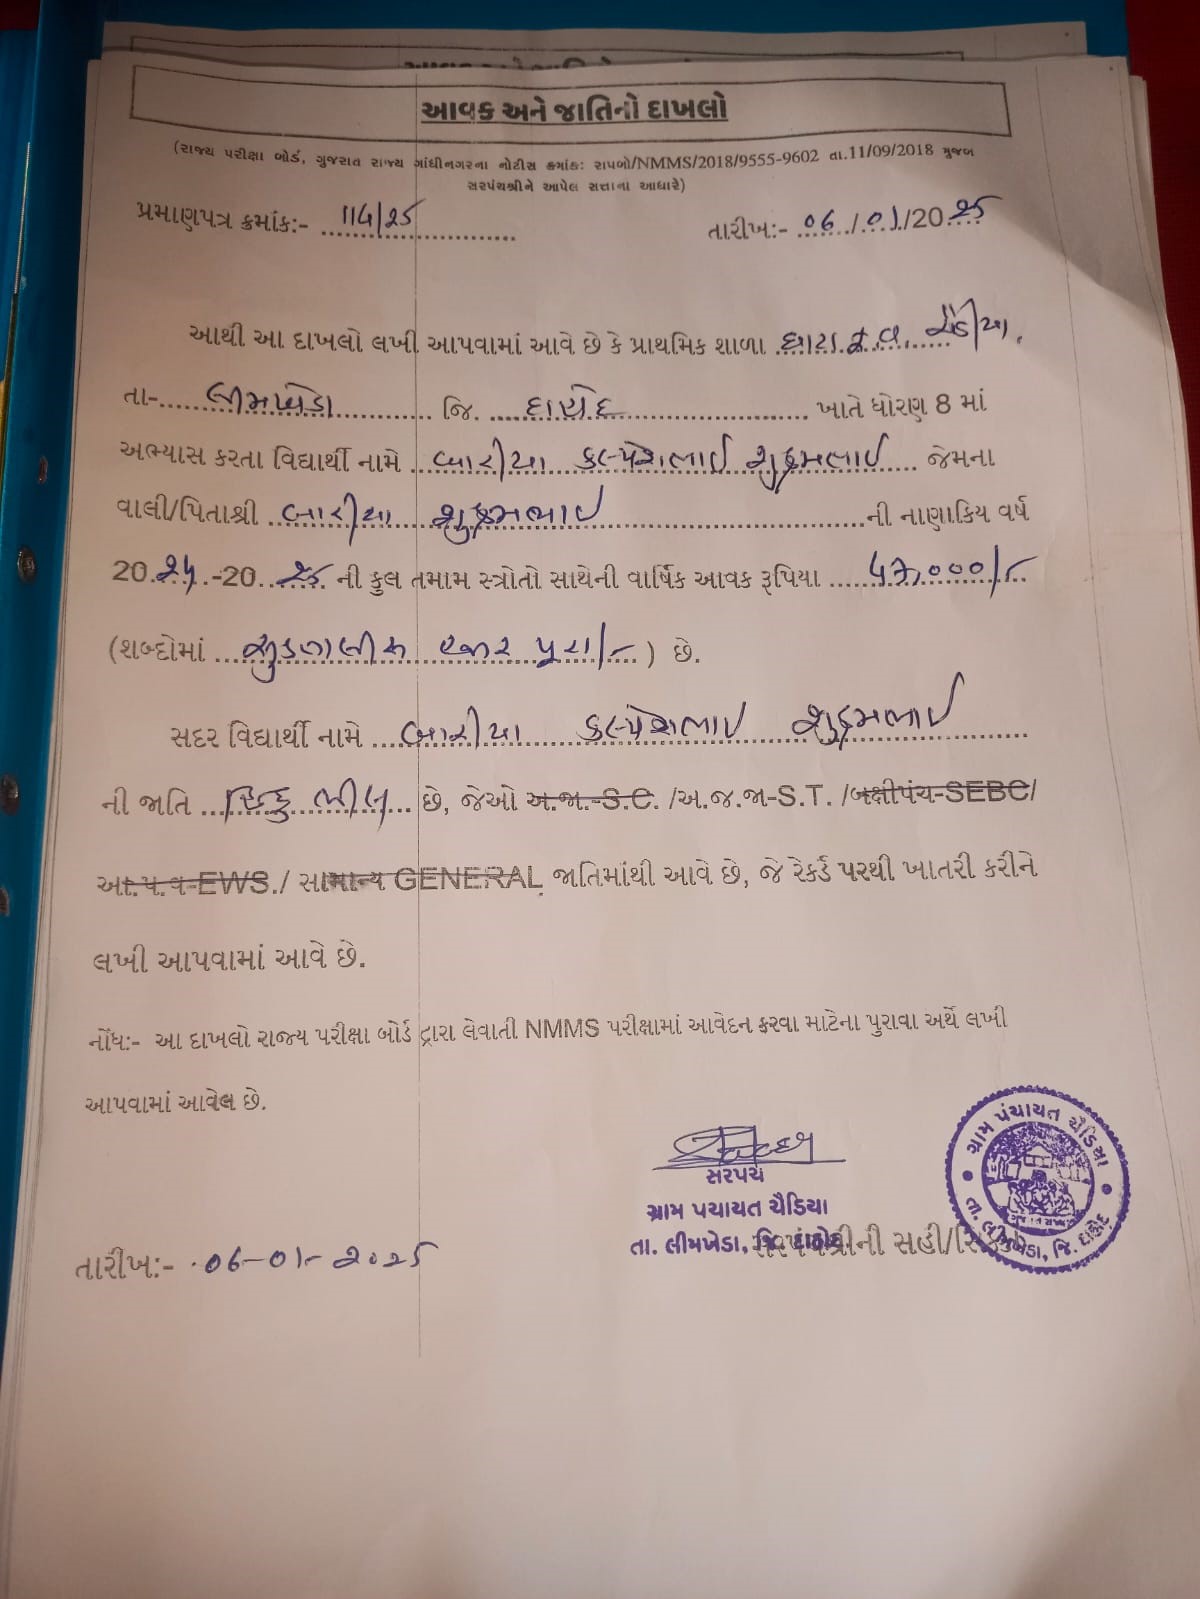 આવક અને જાતિનો દાખલો
(રાજ્ય પરીક્ષા બોર્ડ, ગુજરાત રાજ્ય ગાંધીનગરના નોટીસ ક્રમાંક: રાપબો/NMMS/2018/9555-9602 તા.11/09/2018 મુજબ
સરપંચશ્રીને આપેલ સત્તાના આધારે)
પ્રમાણપત્ર ક્રમાંક:- 114/25 તારીખ:- 06/01/2025
આથી આ દાખલો લખી આપવામાં આવે છે કે પ્રાથમિક શાળા
તા-લીમખેડા જિ. દાહોદ ખાતે ધોરણ 8 માં
અભ્યાસ કરતા વિદ્યાર્થી નામે બારીયા કલ્પેશભાઈ જેમના
વાલી/પિતાશ્રી બારીયા ની નાણાકિય વર્ષ
2024-2025 ની કુલ તમામ સ્ત્રોતો સાથેની વાર્ષિક આવક રૂપિયા 47,000/-
(શબ્દોમાં સુડતાલીસ હજાર પૂરા/-) છે.
સદર વિદ્યાર્થી નામે બારીયા કલ્પેશભાઈ
ની જાતિ હિન્દુ ભીલ છે, જેઓ અ.જા.-S.C. /અ.જ.જા-S.T. /બક્ષીપંચ-SEBC/
આ.પ.વ-EWS./ સામાન્ય GENERAL જાતિમાંથી આવે છે, જે રેકર્ડ પરથી ખાતરી કરીને
લખી આપવામાં આવે છે.
નોંધ:- આ દાખલો રાજ્ય પરીક્ષા બોર્ડ દ્વારા લેવાતી NMMS પરીક્ષામાં આવેદન કરવા માટેના પુરાવા અર્થે લખી
આપવામાં આવેલ છે.
સરપંચ
ગ્રામ પચાયત ચૈડિયા
તા. લીમખેડા, જિ. દાહોદ.
સરપંચશ્રીની સહી/સિક્કો
ગ્રામ પંચાયત ચૈડિયા
તા. લીમખેડા, જિ. દાહોદ
તારીખ:- 06-01-2025